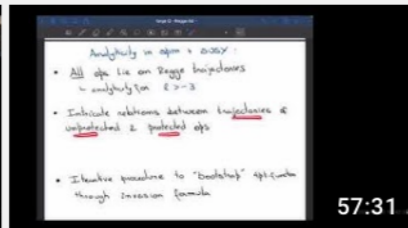 Analyticity in spin + SUSY:
• All ops lie on Regge trajectories
↳ analyticity for ℓ > -3
• Intricate relations between trajectories of
unprotected & protected ops
• Iterative procedure to "bootstrap"
through inversion formula
57:31